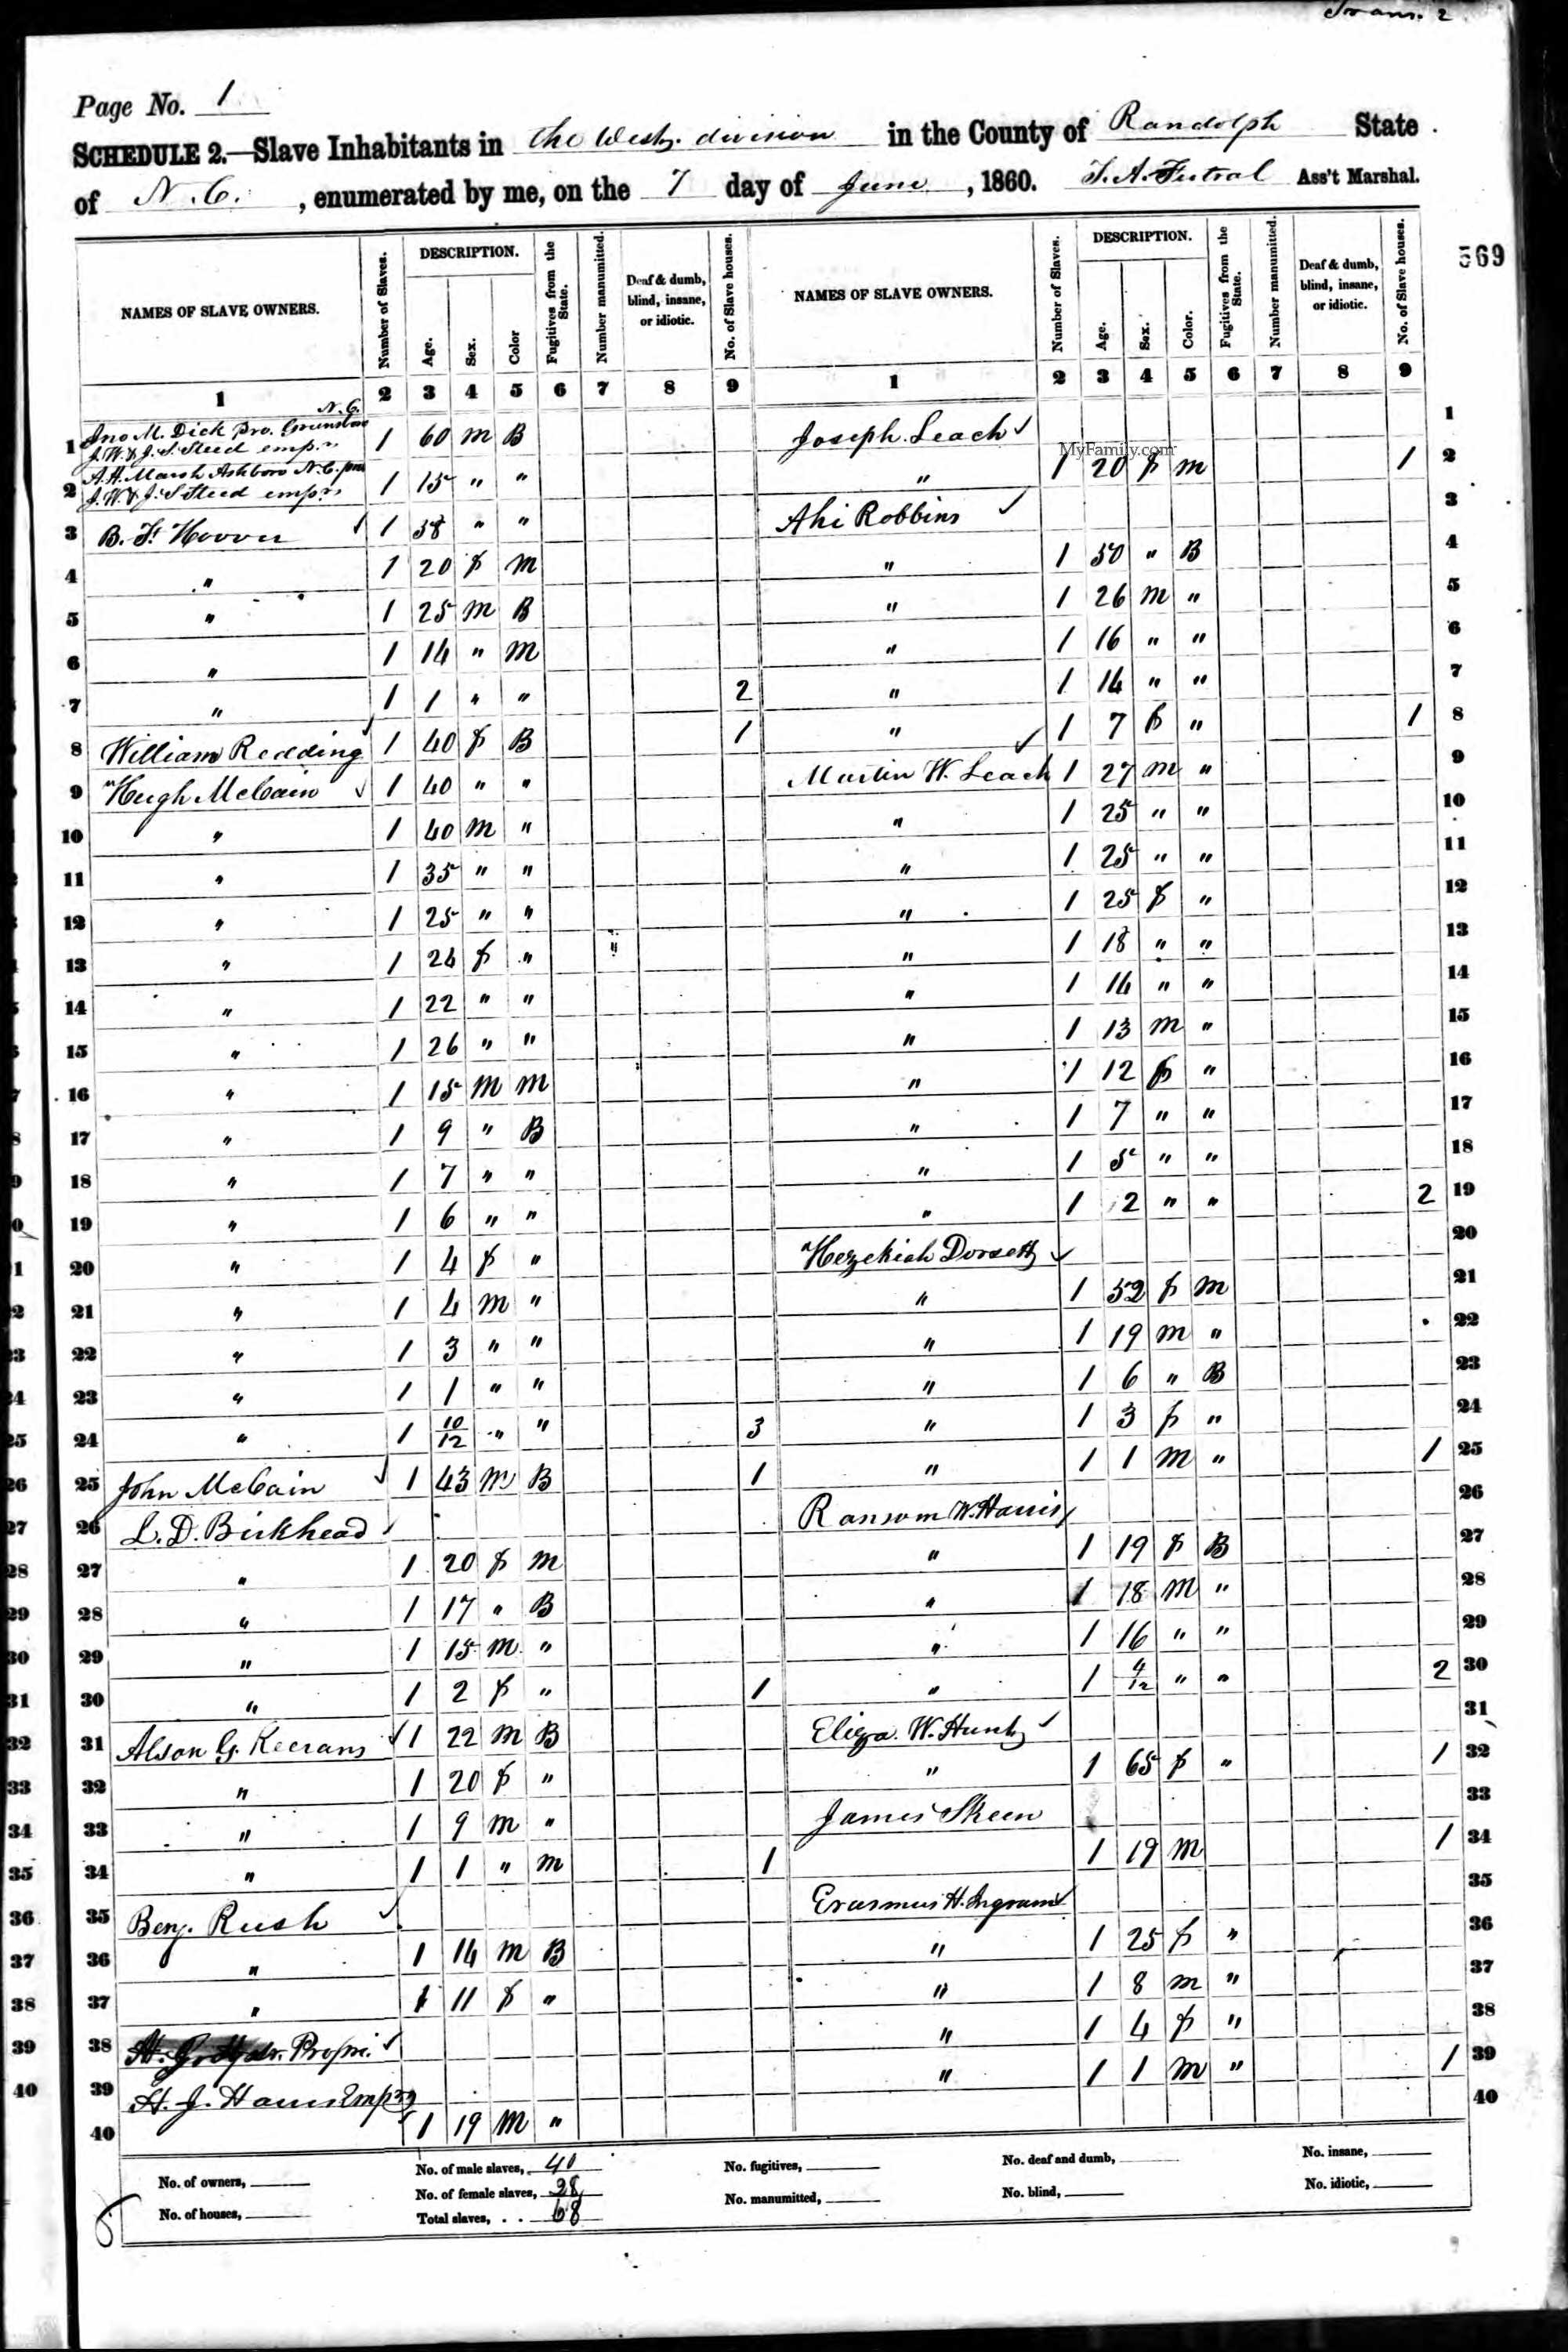 Page No. 1
SCHEDULE 2.—Slave Inhabitants in the West. division in the County of Randolph State
of N. C. , enumerated by me, on the 7 day of June , 1860. Ass't Marshal.
569
NAMES OF SLAVE OWNERS. Number of Slaves. DESCRIPTION. Age. Sex. Color Fugitives from the State. Number manumitted. Deaf & dumb, blind, insane, or idiotic. No. of Slave houses. NAMES OF SLAVE OWNERS. Number of Slaves. DESCRIPTION. Age. Sex. Color. Fugitives from the State. Number manumitted. Deaf & dumb, blind, insane, or idiotic. No. of Slave houses.
1 2 3 4 5 6 7 8 9 1 2 3 4 5 6 7 8 9
1 Jno M. Dick Pro. Greensboro N.C. J. W. & J. S. Steed emp. 1 60 m B Joseph Leach 1
MyFamily.com
2 A. H. Marsh Ashboro N. C. J. W. & J. S Steed emp. 1 15 " " " 1 20 f m 1 2
3 B. F. Hoover 1 58 " " Ahi Robbins 3
4 " 1 20 f m " 1 50 " B 4
5 " 1 25 m B " 1 26 m " 5
6 " 1 14 " m " 1 16 " " 6
7 " 1 1 " " 2 " 1 14 " " 7
8 William Redding 1 40 f B 1 " 1 7 f " 1 8
9 Hugh McCain 1 40 " " Martin W. Leach 1 27 m " 9
10 " 1 40 m " " 1 25 " " 10
11 " 1 35 " " " 1 25 " " 11
12 " 1 25 " " " 1 25 f " 12
13 " 1 24 f " " " 1 18 " " 13
14 " 1 22 " " " 1 14 " " 14
15 " 1 26 " " " 1 13 m " 15
16 " 1 15 m m " 1 12 f " 16
17 " 1 9 " B " 1 7 " " 17
18 " 1 7 " " " 1 5 " " 18
19 " 1 6 " " " 1 2 " " 2 19
20 " 1 4 f " Hezekiah Dorsett 20
21 " 1 4 m " " 1 52 f m 21
22 " 1 3 " " " 1 19 m " 22
23 " 1 1 " " " 1 6 " B 23
24 " 1 10/12 " " 3 " 1 3 f " 24
25 John McCain 1 43 m B 1 " 1 1 m " 1 25
26 L. D. Birkhead Ransom W. Harris 26
27 " 1 20 f m " 1 19 f B 27
28 " 1 17 " B " 1 18 m " 28
29 " 1 15 m " " 1 16 " " 29
30 " 1 2 f " 1 " 1 4/12 " " 2 30
31 Alson G. Keerans 1 22 m B Eliza. W. Hunt 31
32 " 1 20 f " " 1 65 f " 1 32
33 " 1 9 m " James Skeen 33
34 " 1 1 " m 1 1 19 m 1 34
35 Benj. Rush Erasmus H. Ingram 35
36 " 1 14 m B " 1 25 f " 36
37 " 1 11 f " " 1 8 m " 37
38 " 1 4 f " 38
39 H. J. Harris Emp " 1 1 m " 1 39
40 1 19 m " 40
No. of owners, No. of male slaves, 40 No. fugitives, No. deaf and dumb, No. insane,
No. of houses, No. of female slaves, 28 No. manumitted, No. blind, No. idiotic,
Total slaves, . . 68